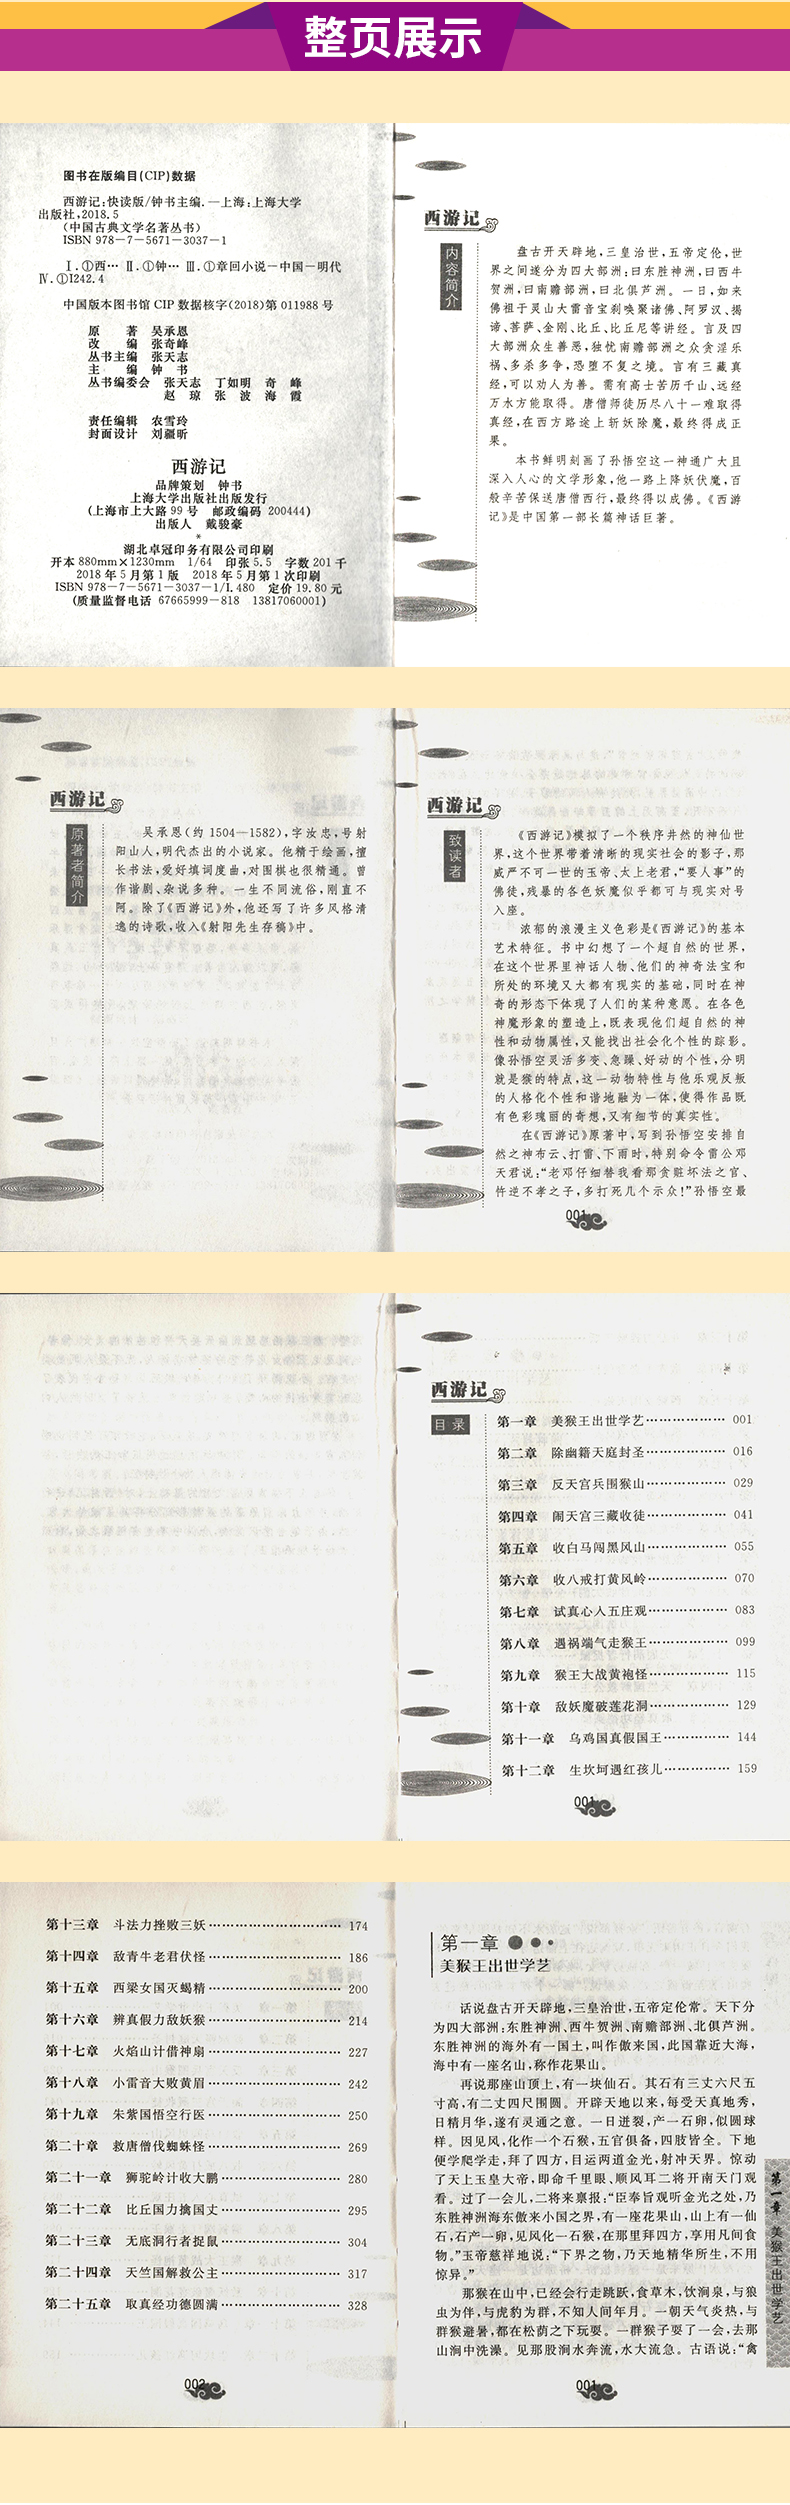 整页展示
图书在版编目(CIP)数据
西游记:快读版/钟书主编.—上海:上海大学
出版社,2018.5
(中国古典文学名著丛书)
ISBN 978-7-5671-3037-1
Ⅰ.①西… Ⅱ.①钟… Ⅲ.①章回小说-中国-明代
Ⅳ.①I242.4
中国版本图书馆 CIP 数据核字(2018)第 011988 号
原 著 吴承恩
改 编 张奇峰
丛书主编 张天志
主 编 钟 书
丛书编委会 张天志 丁如明 奇 峰
赵 琼 张 波 海 霞
责任编辑 农雪玲
封面设计 刘疆昕
西游记
品牌策划 钟书
上海大学出版社出版发行
(上海市上大路 99 号 邮政编码 200444)
出版人 戴骏豪
*
湖北卓冠印务有限公司印刷
开本 880mm×1230mm 1/64 印张 5.5 字数 201 千
2018 年 5 月第 1 版 2018 年 5 月第 1 次印刷
ISBN 978-7-5671-3037-1/I.480 定价 19.80 元
(质量监督电话 67665999-818 13817060001)
西游记
内容简介
盘古开天辟地,三皇治世,五帝定伦,世
界之间遂分为四大部洲:曰东胜神洲,曰西牛
贺洲,曰南赡部洲,曰北俱芦洲。一日,如来
佛祖于灵山大雷音宝刹唤聚诸佛、阿罗汉、揭
谛、菩萨、金刚、比丘、比丘尼等讲经。言及四
大部洲众生善恶,独忧南赡部洲之众贪淫乐
祸、多杀多争,恐堕不复之境。言有三藏真
经,可以劝人为善。需有高士苦历千山、远经
万水方能取得。唐僧师徒历尽八十一难取得
真经,在西方路途上斩妖除魔,最终得成正
果。
本书鲜明刻画了孙悟空这一神通广大且
深入人心的文学形象,他一路上降妖伏魔,百
般辛苦保送唐僧西行,最终得以成佛。《西游
记》是中国第一部长篇神话巨著。
西游记
原著者简介
吴承恩(约 1504—1582),字汝忠,号射
阳山人,明代杰出的小说家。他精于绘画,擅
长书法,爱好填词度曲,对围棋也很精通。曾
作谐剧、杂说多种。一生不同流俗,刚直不
阿。除了《西游记》外,他还写了许多风格清
逸的诗歌,收入《射阳先生存稿》中。
西游记
致读者
《西游记》模拟了一个秩序井然的神仙世
界,这个世界带着清晰的现实社会的影子,那
威严不可一世的玉帝、太上老君,“要人事”的
佛徒,残暴的各色妖魔似乎都可与现实对号
入座。
浓郁的浪漫主义色彩是《西游记》的基本
艺术特征。书中幻想了一个超自然的世界,
在这个世界里神话人物、他们的神奇法宝和
所处的环境又大都有现实的基础,同时在神
奇的形态下体现了人们的某种意愿。在各色
神魔形象的塑造上,既表现他们超自然的神
性和动物属性,又能找出社会化个性的踪影。
像孙悟空灵活多变、急躁、好动的个性,分明
就是猴的特点,这一动物特性与他乐观反叛
的人格化个性和谐地融为一体,使得作品既
有色彩瑰丽的奇想,又有细节的真实性。
在《西游记》原著中,写到孙悟空安排自
然之神布云、打雷、下雨时,特别命令雷公邓
天君说:“老邓仔细替我看那贪赃坏法之官、
忤逆不孝之子,多打死几个示众!”孙悟空最
001
西游记
目录
第一章 美猴王出世学艺……………… 001
第二章 除幽籍天庭封圣……………… 016
第三章 反天宫兵围猴山……………… 029
第四章 闹天宫三藏收徒……………… 041
第五章 收白马闯黑风山……………… 055
第六章 收八戒打黄风岭……………… 070
第七章 试真心人五庄观……………… 083
第八章 遇祸端气走猴王……………… 099
第九章 猴王大战黄袍怪……………… 115
第十章 敌妖魔破莲花洞……………… 129
第十一章 乌鸡国真假国王…………… 144
第十二章 生坎坷遇红孩儿…………… 159
001
第十三章 斗法力挫败三妖………………………… 174
第十四章 敌青牛老君伏怪………………………… 186
第十五章 西梁女国灭蝎精………………………… 200
第十六章 辨真假力敌妖猴………………………… 214
第十七章 火焰山计借神扇………………………… 227
第十八章 小雷音大败黄眉………………………… 242
第十九章 朱紫国悟空行医………………………… 250
第二十章 救唐僧伐蜘蛛怪………………………… 269
第二十一章 狮驼岭计收大鹏……………………… 280
第二十二章 比丘国力擒国丈……………………… 295
第二十三章 无底洞行者捉鼠……………………… 304
第二十四章 天竺国解救公主……………………… 317
第二十五章 取真经功德圆满……………………… 328
002
第一章
美猴王出世学艺
话说盘古开天辟地,三皇治世,五帝定伦常。天下分
为四大部洲:东胜神洲、西牛贺洲、南赡部洲、北俱芦洲。
东胜神洲的海外有一国土,叫作傲来国,此国靠近大海,
海中有一座名山,称作花果山。
再说那座山顶上,有一块仙石。其石有三丈六尺五
寸高,有二丈四尺围圆。开辟天地以来,每受天真地秀,
日精月华,遂有灵通之意。一日迸裂,产一石卵,似圆球
样。因见风,化作一个石猴,五官俱备,四肢皆全。下地
便学爬学走,拜了四方,目运两道金光,射冲天界。惊动
了天上玉皇大帝,即命千里眼、顺风耳二将开南天门观
看。过了一会儿,二将来禀报:“臣奉旨观听金光之处,乃
东胜神洲海东傲来小国之界,有一座花果山,山上有一仙
石,石产一卵,见风化一石猴,在那里拜四方,享用凡间食
物。”玉帝慈祥地说:“下界之物,乃天地精华所生,不用
惊异。”
那猴在山中,已经会行走跳跃,食草木,饮涧泉,与狼
虫为伴,与虎豹为群,不知人间年月。一朝天气炎热,与
群猴避暑,都在松荫之下玩耍。一群猴子耍了一会,去那
山涧中洗澡。见那股涧水奔流,水大流急。古语说:“禽
第一章 美猴王出世学艺
001